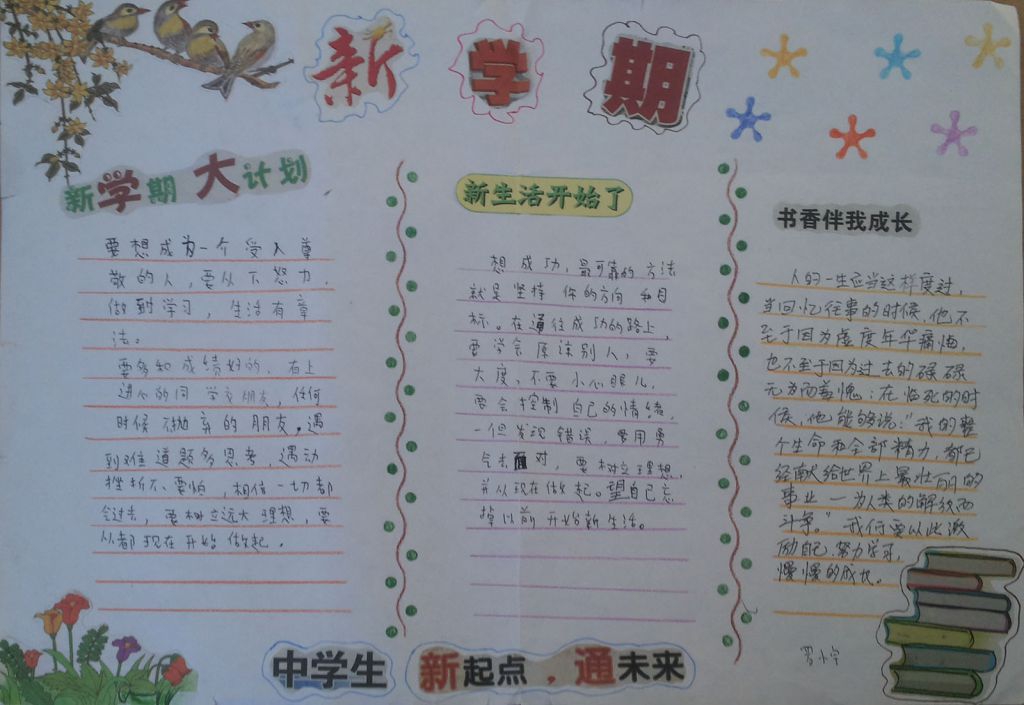 新学期
新学期 大计划
要想成为一个受人尊
敬的人，要从下努力，
做到学习，生活有章
法。
要多和成绩好的、有上
进心的同学交朋友，任何
时候不抛弃的朋友，遇
到难道题多思考，遇动
挫折不要怕，相信一切都
会过去，要树立远大理想，要
从都现在开始做起。
新生活开始了
想成功，最可靠的方法
就是坚持你的方向和目
标。在通往成功的路上，
要学会原谅别人，要
大度，不要小心眼儿，
要会控制自己的情绪，
一但发现错误，要用勇
气去面对，要树立理想，
并从现在做起。望自己忘
掉以前开始新生活。
书香伴我成长
人的一生应当这样度过，
当回忆往事的时候，他不
至于因为虚度年华痛悔，
也不至于因为过去的碌碌
无为而羞愧；在临死的时
侯，他能够说："我的整
个生命和全部精力，都已
经献给世界上最壮丽的
事业—为人类的解放而
斗争。"我们要以此激
励自己，努力学习，
慢慢的成长。
中学生 新起点，通未来